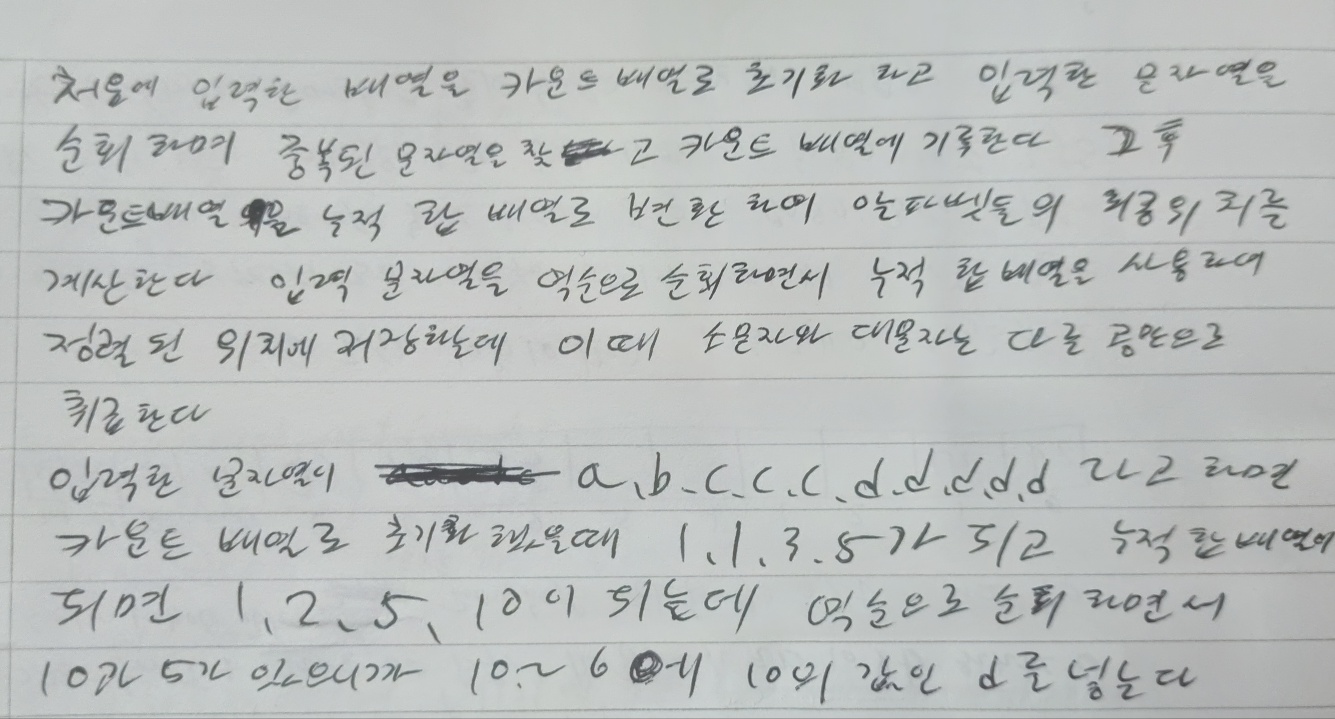 처음에 입력한 배열을 카운트 배열로 초기화 하고 입력한 문자열을
순회 하며 중복된 문자열을 찾고 카운트 배열에 기록한다 그 후
카운트배열을 누적 합 배열로 변환 하여 알파벳들의 최종위치를
계산한다 입력 문자열을 역순으로 순회하면서 누적 합 배열을 사용하여
정렬 된 위치에 저장하는데 이때 소문자와 대문자는 다른 공간으로
취급한다
입력한 문자열이 a、b、c、c、c、d、d、d、d、d 라고 하면
카운트 배열로 초기화 했을때 1、1、3、5가 되고 누적 합 배열이
되면 1、2、5、10이 되는데 역순으로 순회 하면서
10과 5가 있으니까 10~6에 10의 값인 d를 넣는다